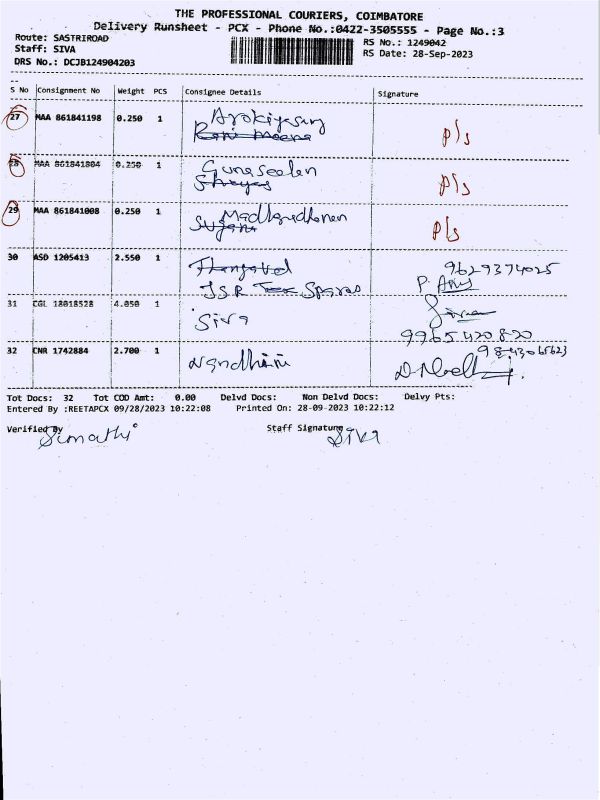 THE PROFESSIONAL COURIERS, COIMBATORE
Delivery Runsheet - PCX - Phone No.:0422-3505555 - Page No.:3
Route: SASTRIROAD RS No.: 1249042
Staff: SIVA RS Date: 28-Sep-2023
DRS No.: DCJB124904203
S No Consignment No Weight PCS Consignee Details Signature
27 MAA 861841198 0.250 1 Arokiyasamy Pls
Rani Meena
28 MAA 861841804 0.250 1 Gunaseelan Pls
Shreyas
29 MAA 861841008 0.250 1 Madhusudhanan Pls
Sugani
30 ASD 1205413 2.550 1 Thangavel 9629374025
J.S.R Tex Spares P.
31 CGL 18018528 4.050 1 Siva Siva
9965420820
32 CNR 1742884 2.700 1 Nandhini 9843065623
Tot Docs: 32 Tot COD Amt: 0.00 Delvd Docs: Non Delvd Docs: Delvy Pts:
Entered By :REETAPCX 09/28/2023 10:22:08 Printed On: 28-09-2023 10:22:12
Verified By Staff Signature
Sumathi Siva